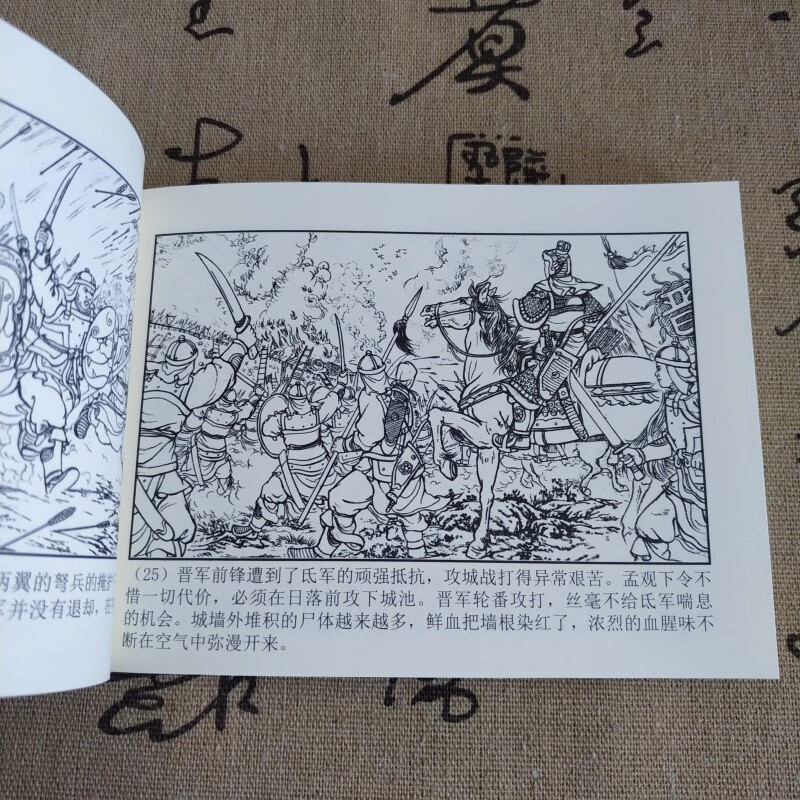 两翼的弩兵的掩护
军并没有退却，在
（25）晋军前锋遭到了氐军的顽强抵抗，攻城战打得异常艰苦。孟观下令不
惜一切代价，必须在日落前攻下城池。晋军轮番攻打，丝毫不给氐军喘息
的机会。城墙外堆积的尸体越来越多，鲜血把墙根染红了，浓烈的血腥味不
断在空气中弥漫开来。